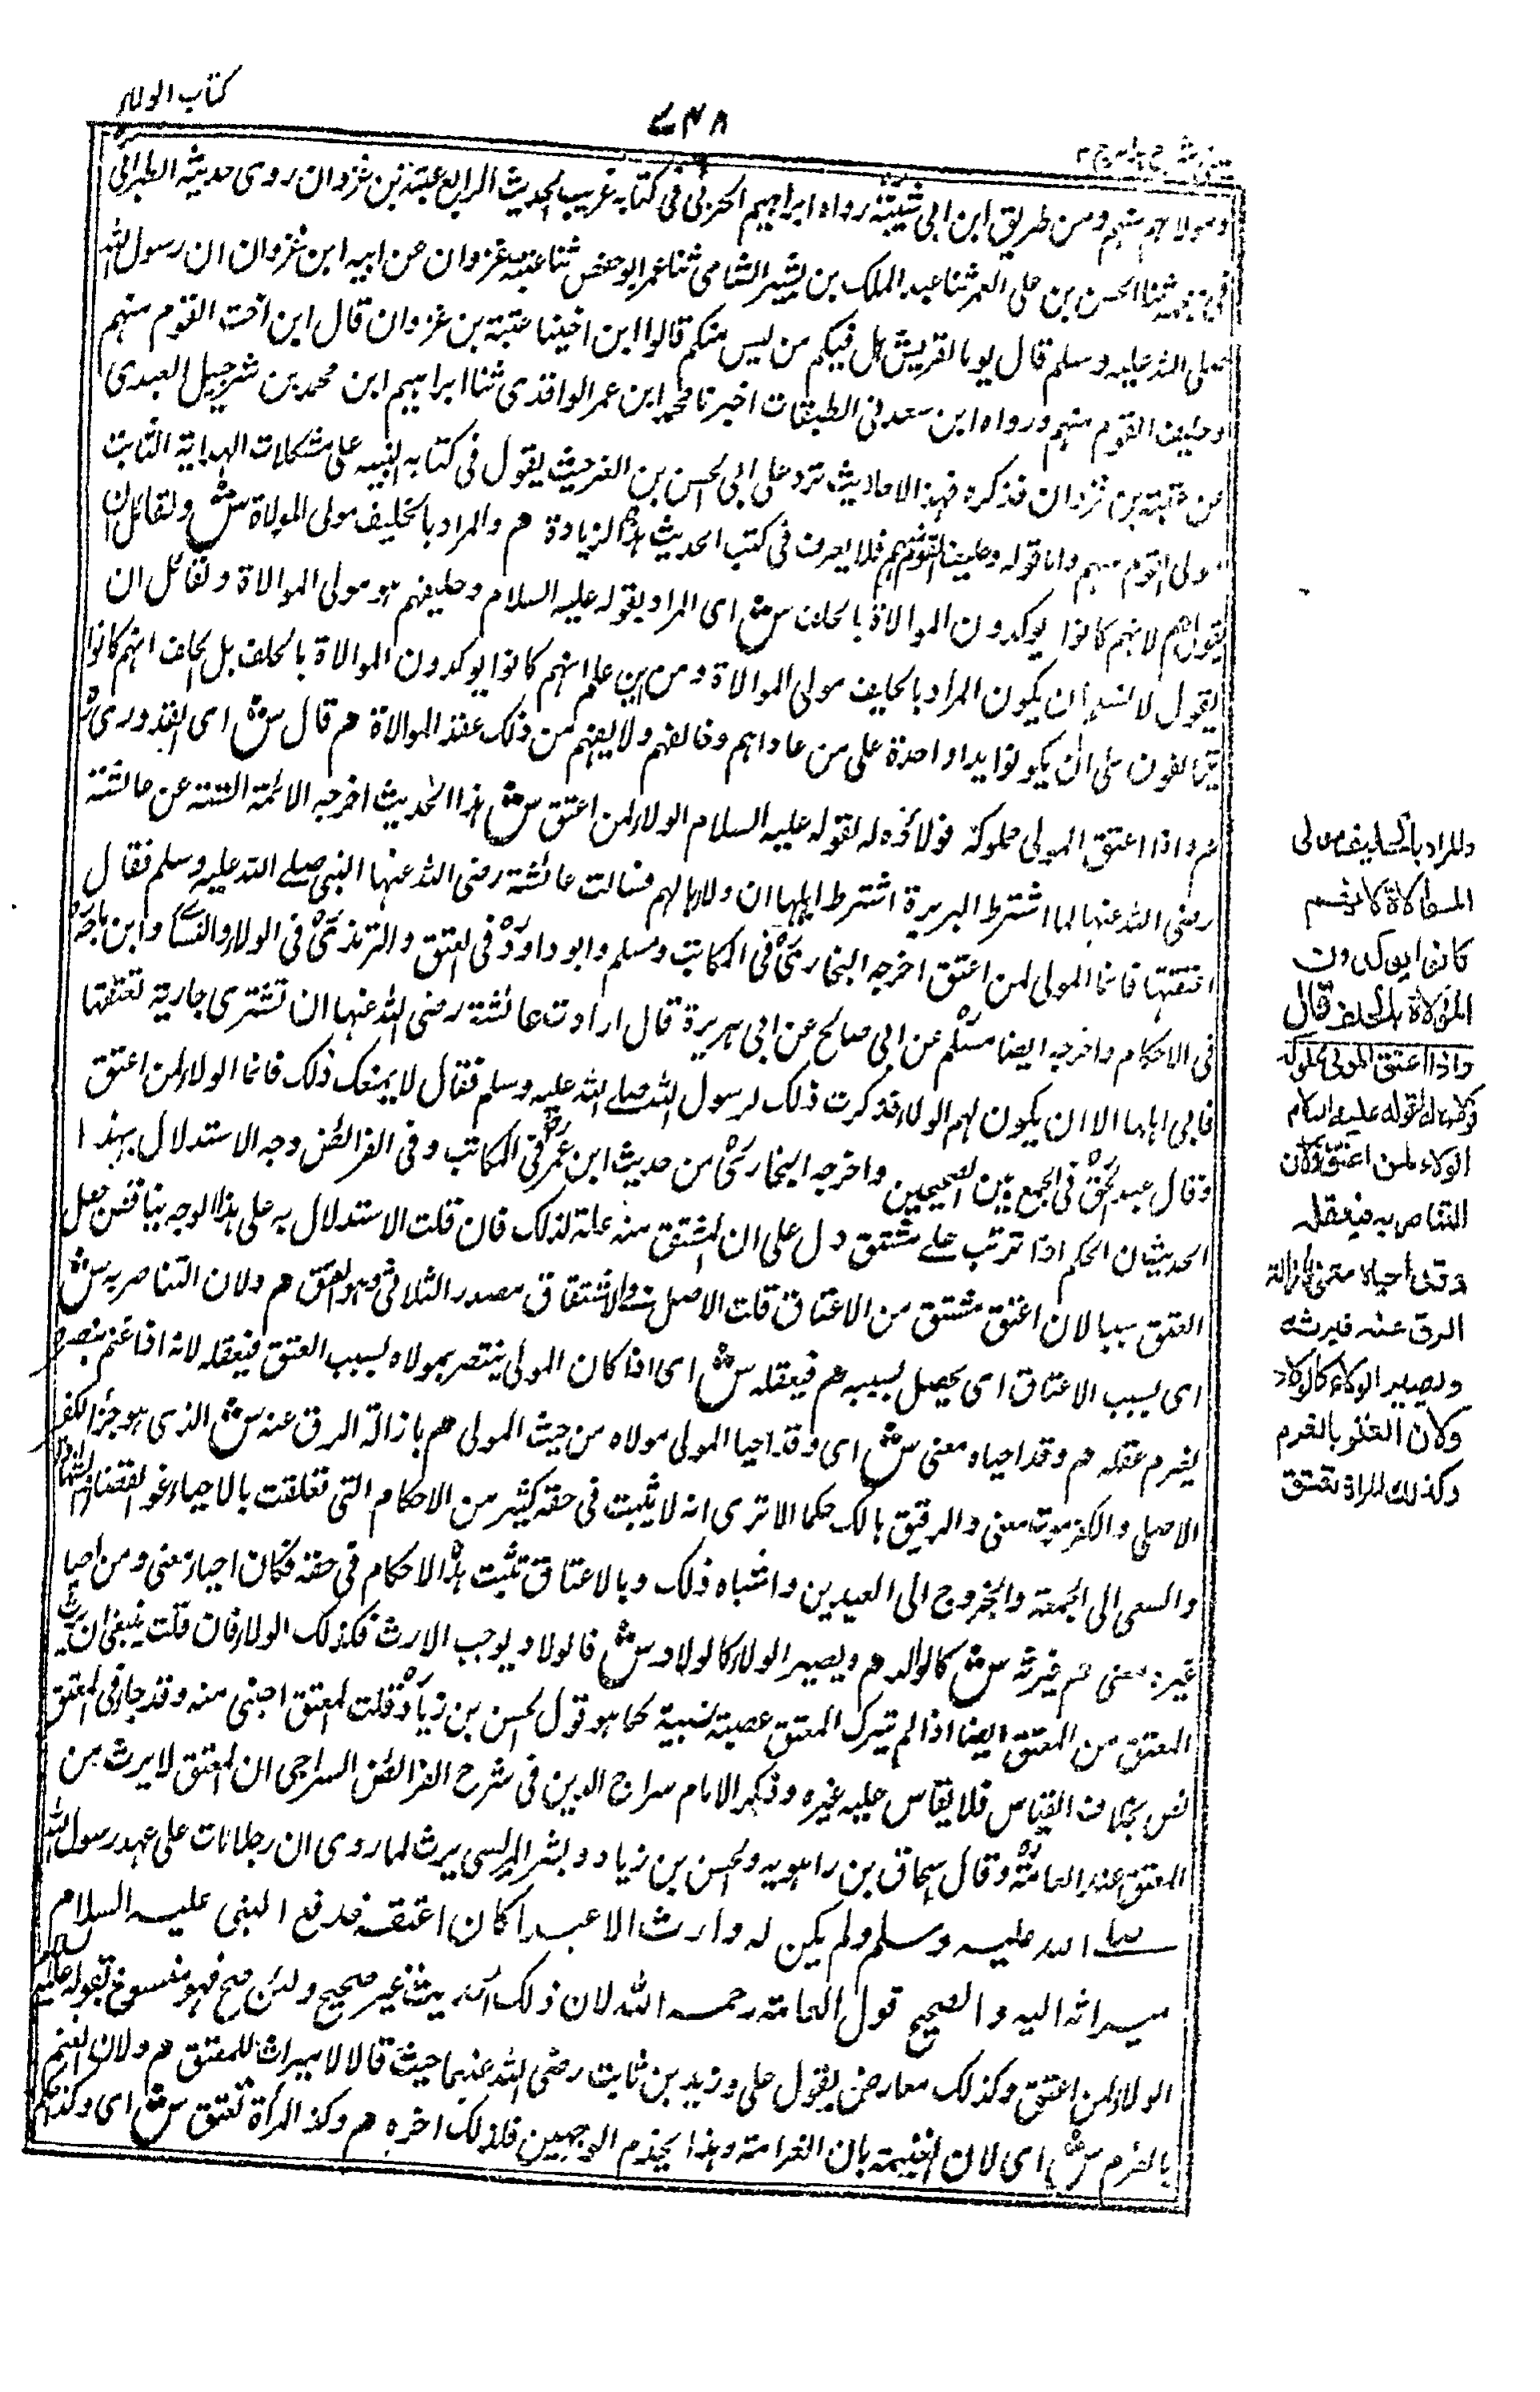 كتاب الولاء
٧٤٨
ومولاهم منهم ومن طريق ابن ابى شيبة رواه ابراهيم الحربى فى كتابه غريب الحديث الرابع عتبة بن غزوان روى حديثه الطبرانى
فى معجمه ثنا الحسن بن على المعمر ثنا عبد الملك بن بشير الشامى ثنا عمر ابو حفص ثنا عتبة غزوان عن ابيه ابن غزوان ان رسول الله
صلى الله عليه وسلم قال يوما لقريش هل فيكم من ليس منكم قالوا ابن اختنا عتبة بن غزوان قال ابن اخت القوم منهم
وحليف القوم منهم ورواه ابن سعد فى الطبقات اخبرنا محمد ابن عمر الواقدى ثنا ابراهيم ابن محمد بن شرحبيل العبدى
عن عتبة بن غزوان فذكره فهذه الاحاديث ترد على ابى الحسن بن العز حيث يقول فى كتابه التنبيه على مشكلات الهداية الثابت
مولى القوم منهم واما قوله وحليف القوم منهم فلا يعرف فى كتب الحديث هذه الزيادة هم والمراد بالحليف مولى المولاة ش ولقائل ان
يقول هم لانهم كانوا يوكدون الموالاة بالحلف ش اى المراد بقوله عليه السلام وحليفهم هو مولى الموالاة ولقائل ان
يقول لا نسلم ان يكون المراد بالحليف مولى الموالاة ومن اين علم انهم كانوا يوكدون الموالاة بالحلف بل الحلف انهم كانوا
يتحالفون على ان يكونوا يدا واحدة على من عاداهم وخالفهم ولا يفهم من ذلك عقد الموالاة هم قال ش اى القدورى ش
هم واذا اعتق المولى مملوكه فولائه له لقوله عليه السلام الولاء لمن اعتق ش هذا الحديث اخرجه الائمة الستة عن عائشة
رضى الله عنها لما اشترط البريرة اشترط اهلها ان ولاءها لهم فسالت عائشة رضى الله عنها النبى صلى الله عليه وسلم فقال
اعتقها فانما المولى لمن اعتق اخرجه البخارى فى المكاتب ومسلم وابو داود فى العتق والترمذى فى الولاء والنسائى وابن ماجة
فى الاحكام واخرجه ايضا مسلم عن ابى صالح عن ابى هريرة قال ارادت عائشة رضى الله عنها ان تشترى جارية تعتقها
فابى اهلها الا ان يكون لهم الولاء فذكرت ذلك لرسول الله صلى الله عليه وسلم فقال لا يمنعك ذلك فانما الولاء لمن اعتق
وقال عبد الحق فى الجمع بين الصحيحين واخرجه البخارى من حديث ابن عمر فى المكاتب وفى الفرائض وجه الاستدلال بهذا
الحديث ان الحكم اذا ترتب على مشتق دل على ان المشتق منه علة لذلك فان قلت الاستدلال به على هذا الوجه يناقض جعل
العتق سببا لان اعتق مشتق من الاعتاق قلت الاصل فى الاشتقاق مصدر الثلاثى وهو العتق هم ولان التناصر به ش
اى بسبب الاعتاق اى يحصل بسببه هم فيعقله ش اى اذا كان المولى ينتصر بمولاه بسبب العتق فيعقله لانه اذا غنم بنصره
يغرم عقله هم وقد احياه معنى ش اى وقد احيا المولى مولاه من حيث المولى هم بازالة الرق عنه ش الذى هو جزاء الكفر
الاصلى والكفر موت معنى والرقيق هالك حكما الا ترى انه لا يثبت فى حقه كثير من الاحكام التى تعلقت بالاحياء نحو القضاء والشهادة
والسعى الى الجمعة والخروج الى العيدين واشباه ذلك وبالاعتاق تثبت هذه الاحكام فى حقه فكان احياء معنى ومن احيا
غيره معنى هم فيرثه ش كالوالد هم ويصير الولاء كالولاد ش فالولاد يوجب الارث فكذلك الولاء فان قلت ينبغى ان يرث
المعتق من المعتق ايضا اذا لم يترك المعتق عصبة نسبية كما هو قول الحسن بن زياد قلت المعتق اجنبى منه وقد جاء فى المعتق
نص بخلاف القياس فلا يقاس عليه غيره وذكر الامام سراج الدين فى شرح الفرائض السراجى ان المعتق لا يرث من
المعتق عند العامة وقال اسحاق بن راهويه والحسن بن زياد وبشر المريسى يرث لما روى ان رجلا مات على عهد رسول الله
صلى الله عليه وسلم ولم يكن له وارث الا عبدا كان اعتقه فدفع النبى عليه السلام
ميراثه اليه والصحيح قول العامة رحمه الله لان ذلك الحديث غير صحيح ولئن صح فهو منسوخ بقوله عليه السلام
الولاء لمن اعتق وكذلك معارض بقول على وزيد بن ثابت رضى الله عنهما حيث قالا لا ميراث للمعتق هم ولان الغنم
بالغرم ش اى لان الغنيمة بان الغرامة وهذا يخدم الوجهين فلذلك اخره هم وكذا المرأة تعتق ش اى وكذا الحكم
والمراد بالحليف مولى
الموالاة لانهم
كانوا يوكدون
الموالاة بالحلف قال
واذا اعتق المولى مملوكه
فولاءه له لقوله عليه السلام
الولاء لمن اعتق ولان
التناصر به فيعقله
وقد احياه معنى بازالة
الرق عنه فيرثه
ويصير الولاء كالولاد
ولان الغنم بالغرم
وكذلك المرأة تعتق